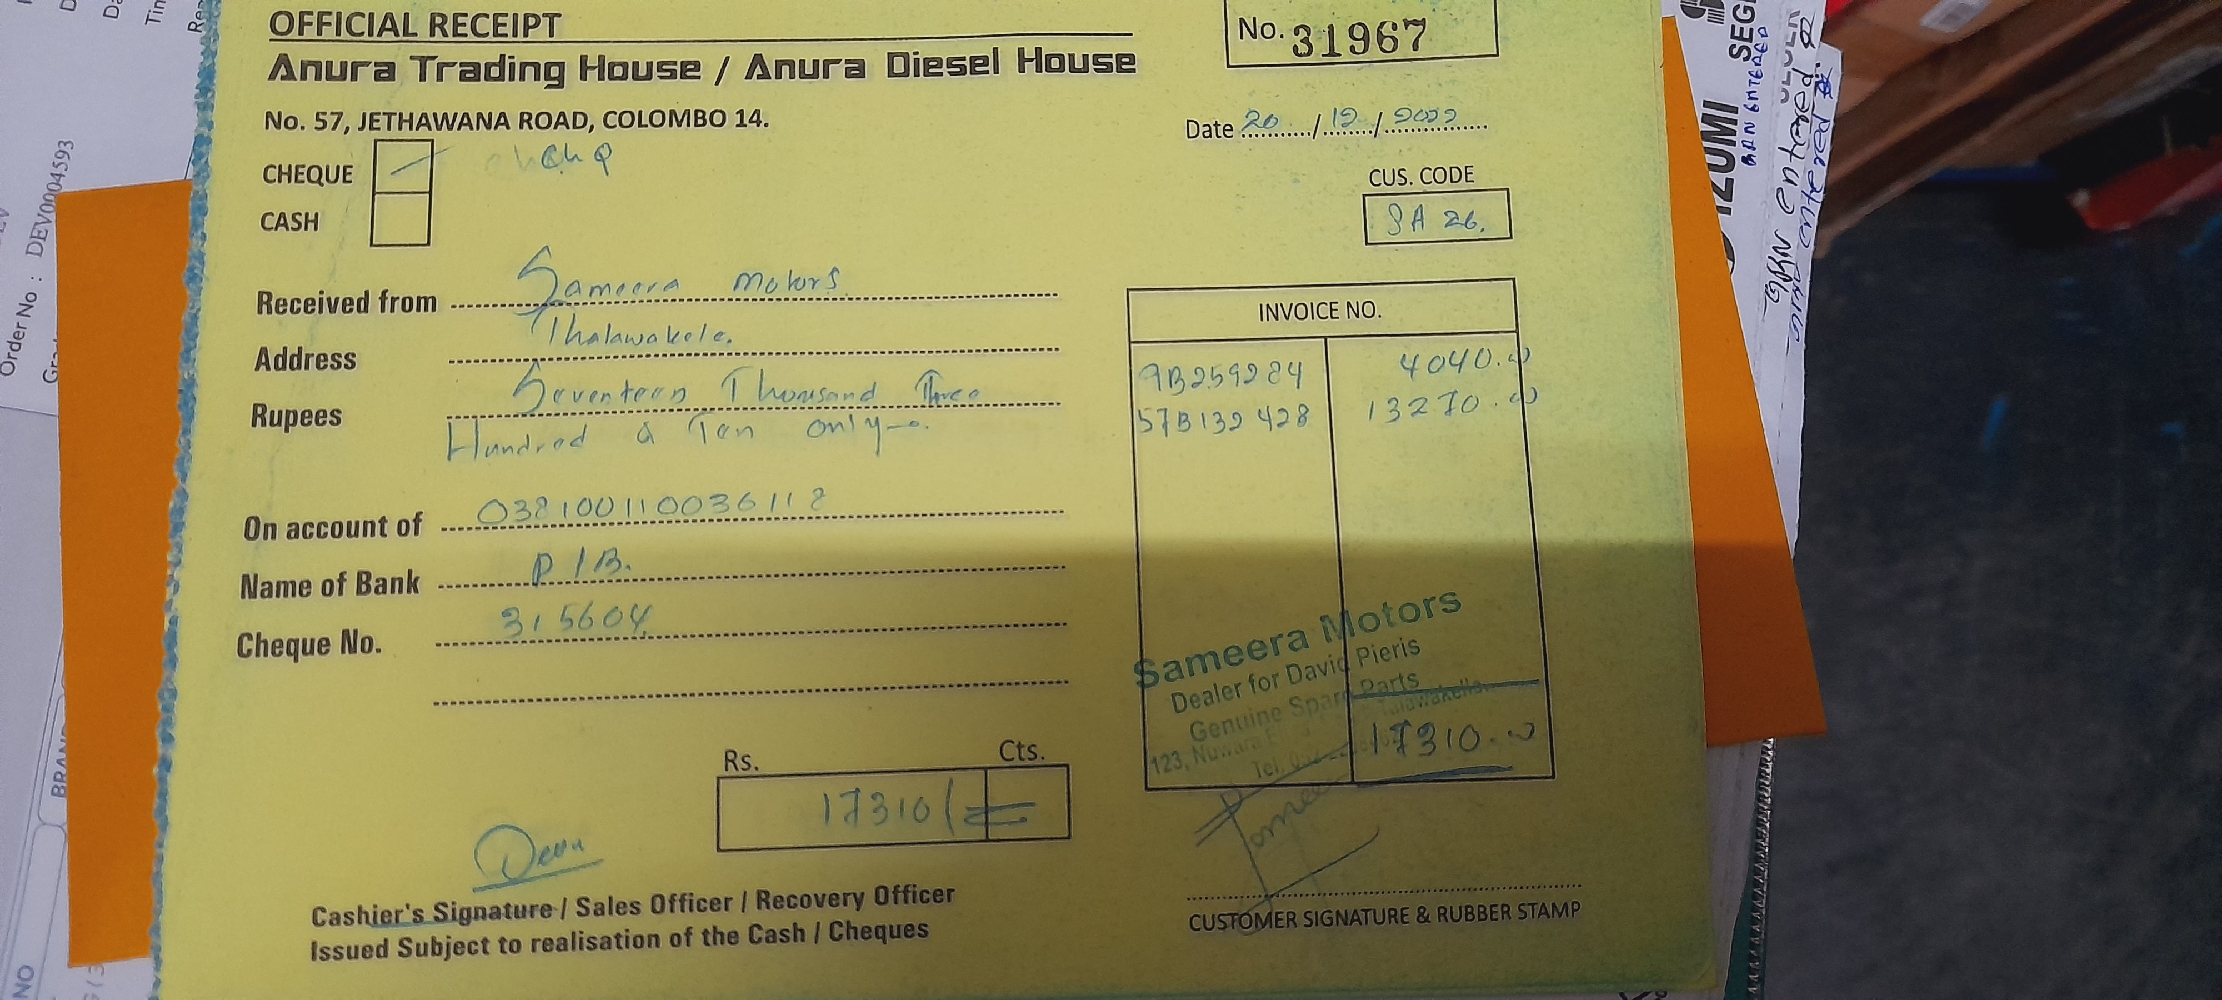 OFFICIAL RECEIPT
No. 31967
Anura Trading House / Anura Diesel House
No. 57, JETHAWANA ROAD, COLOMBO 14.
Date 20/12/2022
CHEQUE
CASH
CUS. CODE
SA 26.
Received from Sameera Motors
Address Thalawakele.
Rupees Seventeen Thousand Three
Hundred & Ten only
INVOICE NO.
9B259284 4040.00
57B132428 13270.00
17310.00
On account of 038100110036118
Name of Bank P/B.
Cheque No. 315604
Sameera Motors
Dealer for David Pieris
Genuine Spare Parts
Rs. Cts.
17310/=
Cashier's Signature / Sales Officer / Recovery Officer
Issued Subject to realisation of the Cash / Cheques
CUSTOMER SIGNATURE & RUBBER STAMP
Order No : DEV0004593